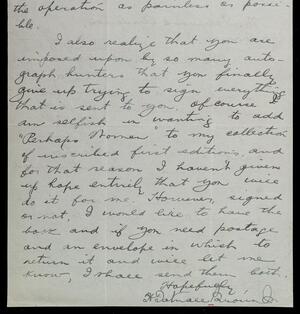 the operation as painless as possi-
ble.
I also realize that you are
imposed upon by so many auto-
graph hunters that you finally
give up trying to sign everything
that is sent to you. Of course I
am selfish in wanting to add
"Perhaps Women" to my collection
of inscribed first editions, and
for that reason I haven't given
up hope entirely that you will
do it for me. However, signed
or not, I would like to have the
book and if you need postage
and an envelope in which to
return it and will let me
know, I shall send them both.
Hopefully
Jr.